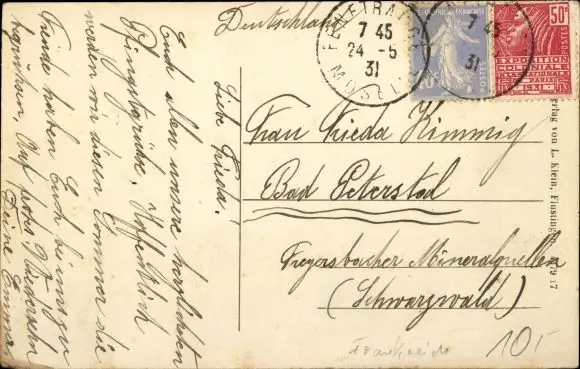 Deutschland
FENETRANGE
7 45
24 - 5
31
MOSELLE
7 45
31
POSTES
50c
EXPOSITION
COLONIALE
INTERNATIONALE
PARIS
1931
POSTES
Liebe Frieda!
Euch allen unsere herzlichsten
Pfingstgrüße. Hoffentlich
werden wir diesen Sommer die
Freude haben Euch bei uns zu
begrüssen. Auf frohes Wiedersehn
Deine Emma
Frau Frieda Kimmig
Bad Peterstal
Freyersbacher Mineralquellen
(Schwarzwald)
Verlag von L. Klein, Finstingen
Frankreich
10,-